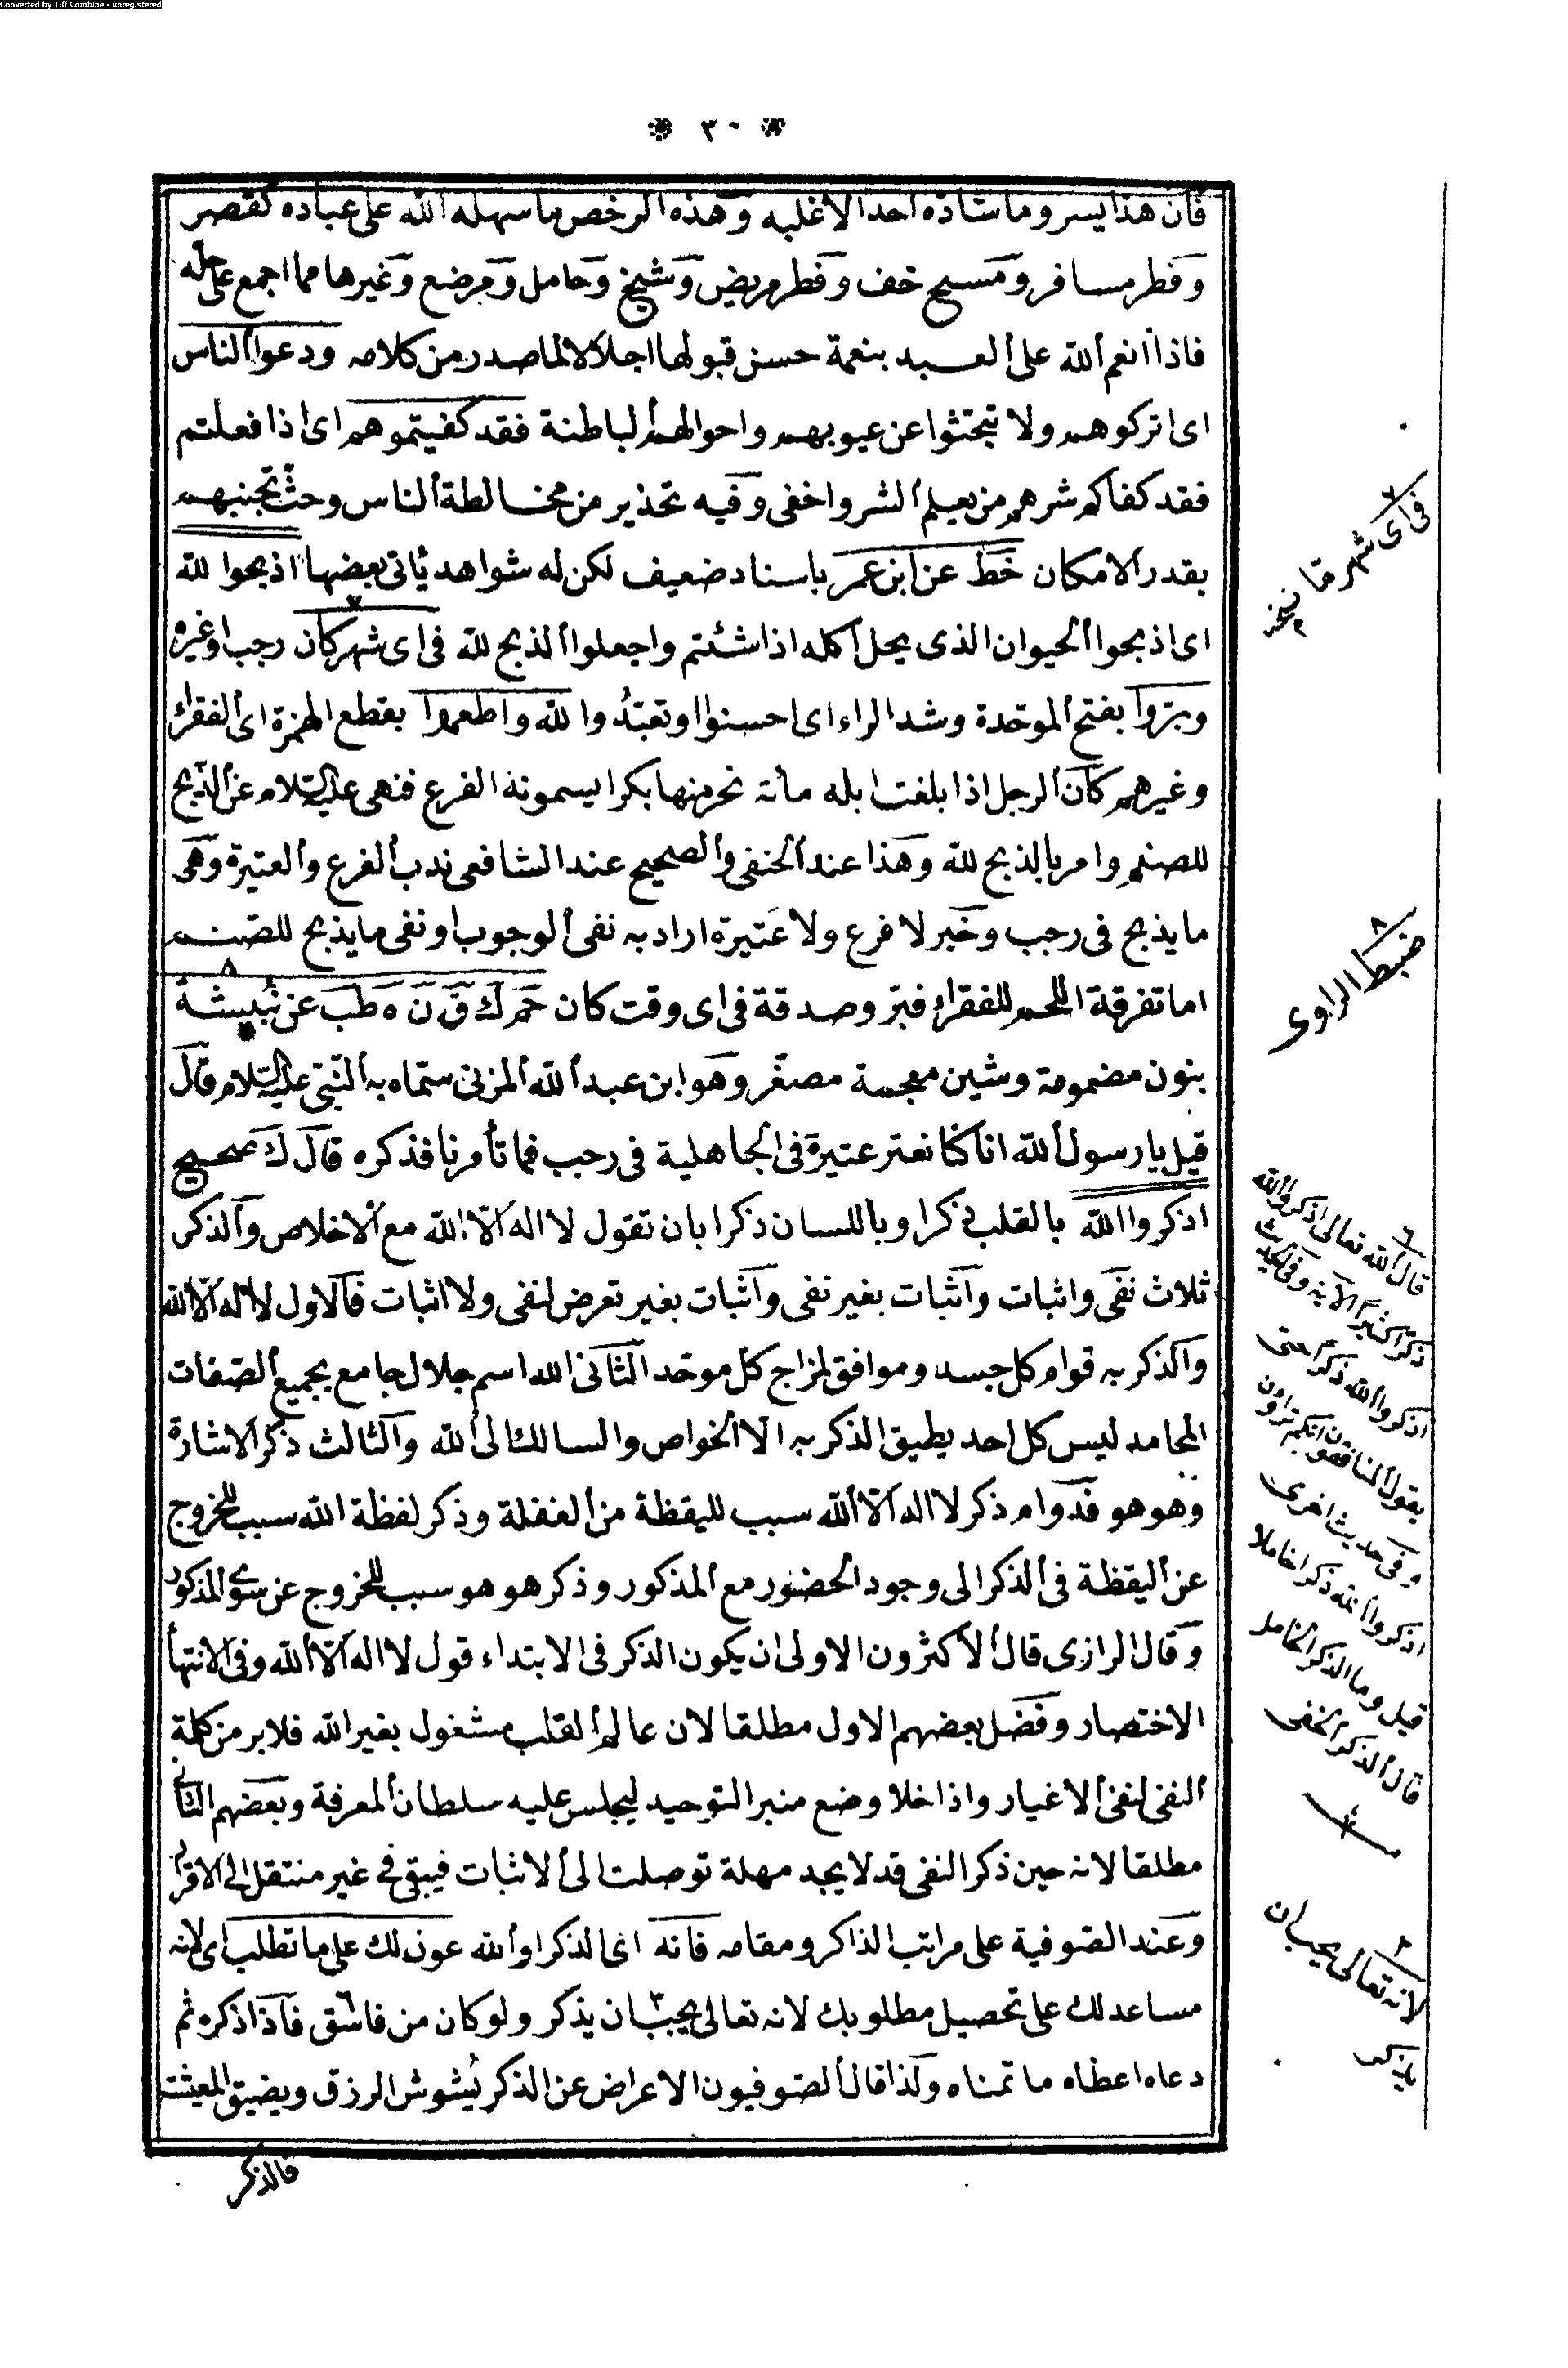 Converted by Tiff Combine - unregistered
* ٣٠ *
فان هذا يسر وما شاده احد الا غلبه وهذه الرخص ما سهله الله على عباده كقصر
وفطر مسافر ومسح خف وفطر مريض وشيخ وحامل ومرضع وغيرها مما اجمع على حله
فاذا انعم الله على العبد بنعمة حسن قبولها اجلالا لما صدر من كلامه ودعوا الناس
اى اتركوهم ولا تبحثوا عن عيوبهم واحوالهم الباطنة فقد كفيتموهم اى اذا فعلتم
فقد كفاكم شرهم من يعلم السر واخفى وفيه تحذير من مخالطة الناس وحث تجنبهم
بقدر الامكان خط عن ابن عمر باسناد ضعيف لكن له شواهد يأتى بعضها اذبحوا لله
اى اذبحوا الحيوان الذى يحل اكله اذا شئتم واجعلوا الذبح لله فى اى شهر كان رجب او غيره
وبرّوا بفتح الموحّدة وشد الراء اى احسنوا وتعبّدوا لله واطعموا بقطع الهمزة اى الفقراء
وغيرهم كان الرجل اذا بلغت ابله مأته نحر منها بكرا يسمونه الفرع فنهى عليه السلام عن الذّبح
للصنم وامر بالذبح لله وهذا عند الحنفى والصحيح عند الشافعى ندب الفرع والعتيرة وهى
ما يذبح فى رجب وخبر لا فرع ولا عتيرة اراد به نفى الوجوب او نفى ما يذبح للصّنم
اما تفرقة اللحم للفقراء فبرّ وصدقة فى اى وقت كان حم د ك ق ن ه طب عن نُبيشة ٨
بنون مضمومة وشين معجمة مصغّر وهو ابن عبد الله المزنى سمّاه به النّبىّ عليه السلام قال
قيل يا رسول الله انا كنا نعتر عتيرة فى الجاهلية فى رجب فما تأمرنا فذكره قال ك صحيح
اذكروا الله بالقلب ذكرا وباللسان ذكرا بان تقول لا اله الّا الله مع الاخلاص والذكر
ثلاث نفى واثبات واثبات بغير نفى واثبات بغير تعرض لنفى ولا اثبات فالاول لا اله الا الله
والذكر به قوام كل جسد وموافق لمزاج كلّ موحّد الثّانى الله اسم جلال جامع بجميع الصّفات
المحامد ليس كل احد يطيق الذكر به الا الخواص والسالك الى الله والثالث ذكر الاشارة
وهو هو فدوام ذكر لا اله الا الله سبب لليقظة من الغفلة وذكر لفظة الله سبب للخروج
عن اليقظة فى الذكر الى وجود الحضور مع المذكور وذكر هو هو سبب للخروج عن سوى المذكور
وقال الرازى قال الاكثرون الاولى ان يكون الذكر فى الابتداء قول لا اله الا الله وفى الانتهاء
الاختصار وفضل بعضهم الاول مطلقا لان عالم القلب مشغول بغير الله فلابر من كلمة
النفى لنفى الاغيار واذا خلا وضع منبر التوحيد ليجلس عليه سلطان المعرفة وبعضهم الثانى
مطلقا لانه حين ذكر النفى قد لا يجد مهلة توصلت الى الاثبات فيبقى فى غير منتقل الى الاقرار
وعند الصّوفية على مراتب الذاكر ومقامه فانه اى الذكر او الله عون لك على ما تطلب اى لانه
مساعد لك على تحصيل مطلوبك لانه تعالى يحبّ ٣ ان يذكر ولو كان من فاسق ٦ فاذا ذكره ثم
دعاه اعطاه ما تمناه ولذا قال الصّوفيون الاعراض عن الذكر يُشوش الرزق ويضيق المعيشة
فالذكر
٧
فى اى شهر ما نسخه م
٨
ضبط الراوى
٦
قال الله تعالى اذكروا الله
ذكرا كثيرا الآية وفى الحديث
اذكروا الله ذكرا حتى
يقول المنافقون انكم تراؤن
وفى حديث اخرى
اذكروا الله ذكرا خاملا
قيل وما الذكر الخامل
قال الذكر الخفى
٣
لانه تعالى يحب ان
يذكر